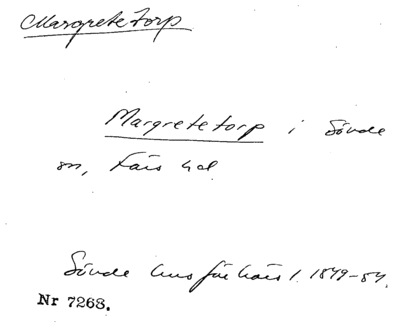 Margretetorp
Margretetorp i Sövde
sn, Färs hd.
Sövde husförhörs l. 1849-54.
Nr 7268.